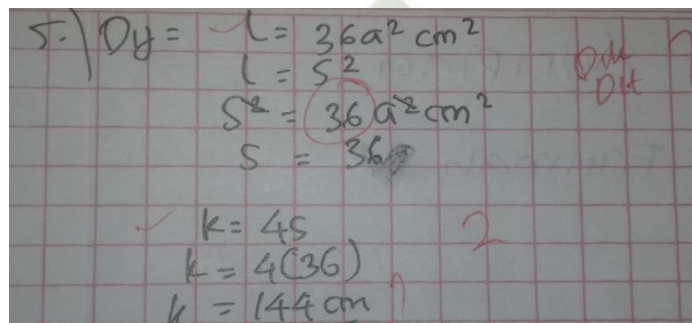 5.) Dy = L = 36a² cm²
L = S²
S² = 36a² cm²
S = 36
k = 4S
2
k = 4(36)
k = 144 cm